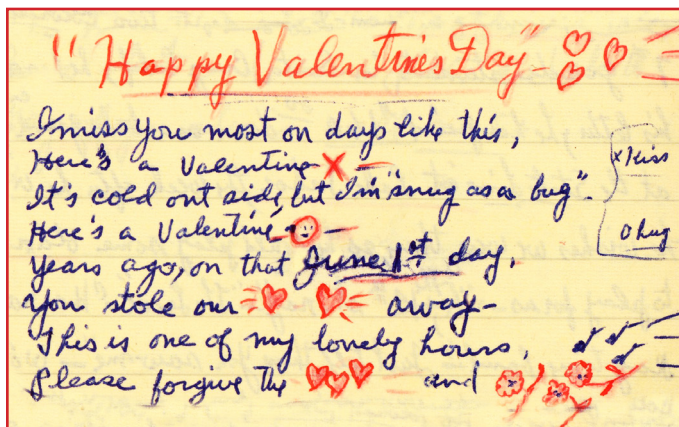 "Happy Valentines Day"-
I miss you most on days like this,
Here's a Valentine X -
It's cold out side, but I'm "snug as a bug".
Here's a Valentine -
years ago, on that June 1st day,
you stole our away-
This is one of my lonely hours,
Please forgive the and
x Kiss
O hug